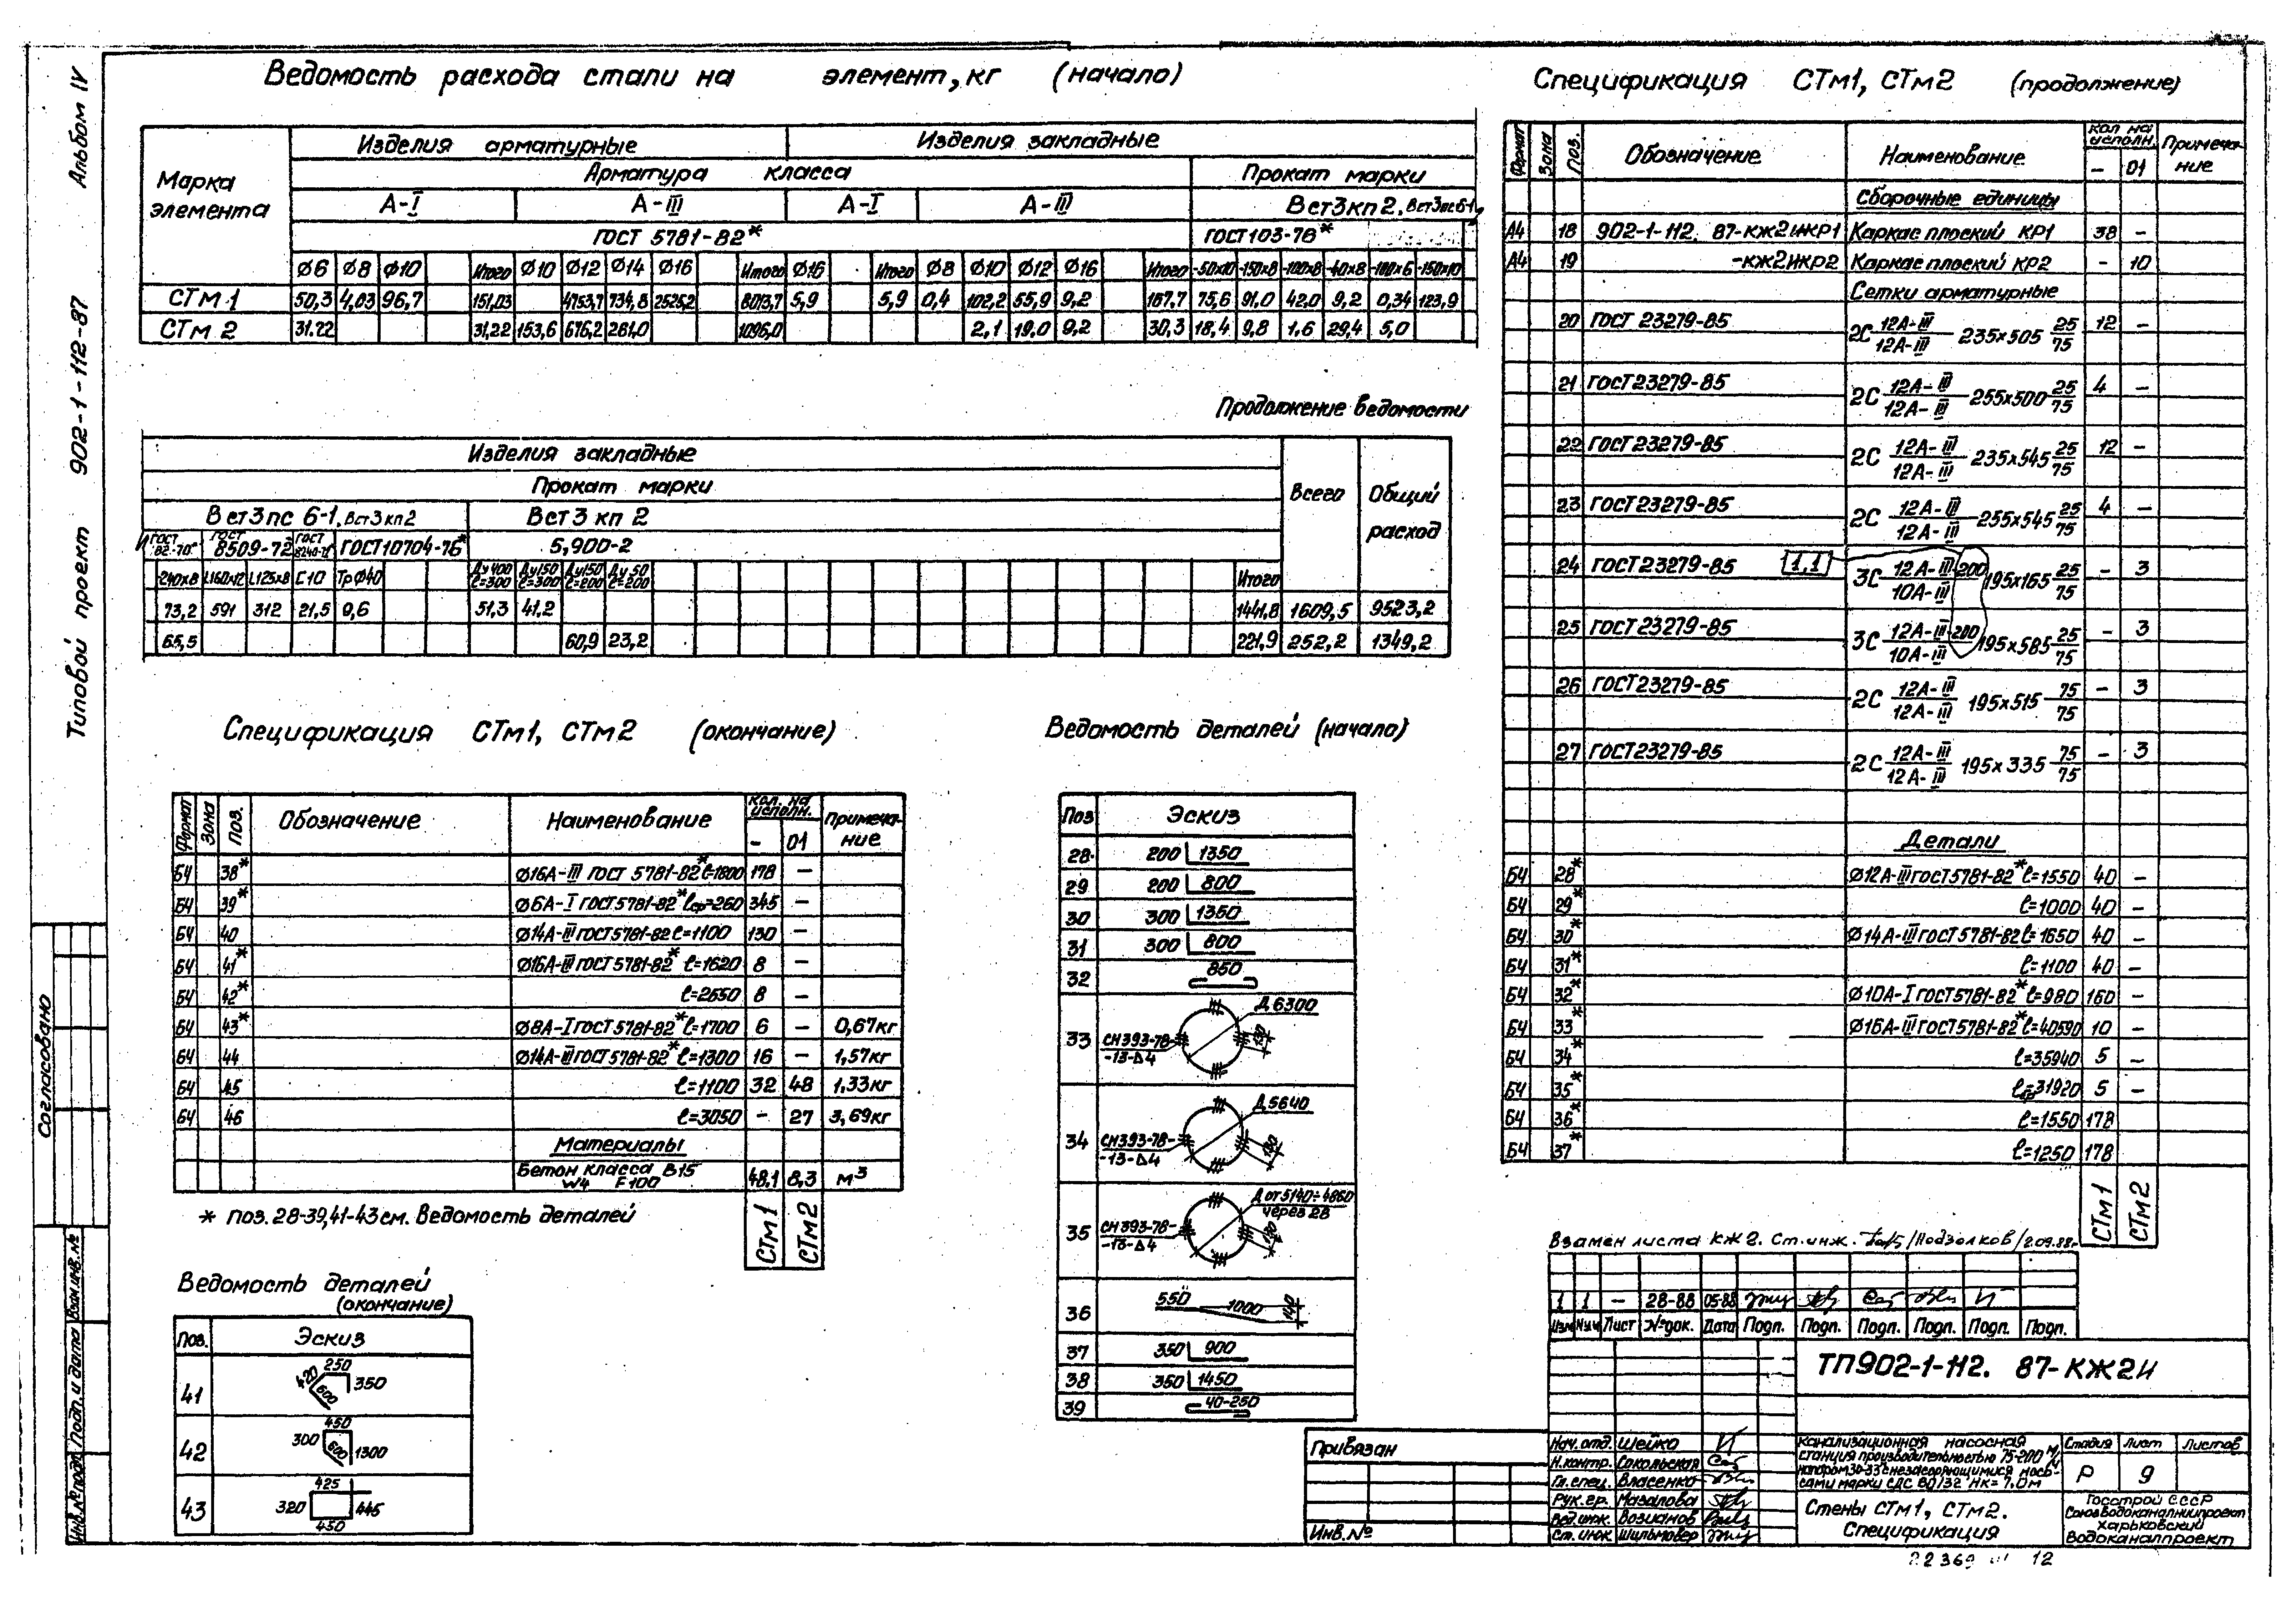 Альбом IV
Типовой проект 902-1-112-87
Согласовано
Инв.№подл. Подп. и дата Взам.инв.№
Ведомость расхода стали на элемент, кг (начало)
Марка элемента
Изделия арматурные
Изделия закладные
Арматура класса
Прокат марки
А-I А-III А-I А-III ВСт3кп2, Вст3пс6-1
ГОСТ 5781-82* ГОСТ103-76*
Ø6 Ø8 Ø10 Итого Ø10 Ø12 Ø14 Ø16 Итого Ø16 Итого Ø8 Ø10 Ø12 Ø16 Итого -50х10 -150х8 -100х8 -40х8 -100х6 -150х10
СТм1 50,3 4,03 96,7 151,03 4753,7 734,8 2525,2 8013,7 5,9 5,9 0,4 102,2 55,9 9,2 167,7 75,6 91,0 42,0 9,2 0,34 123,9
СТм2 31.22 31,22 153,6 676,2 261,0 1096,0 2,1 19.0 9,2 30,3 18,4 9,8 1,6 29,4 5,0
Продолжение ведомости
Изделия закладные
Прокат марки
Всего
Общий расход
Вст3пс 6-1, Вст3кп2 Вст3 кп 2
ГОСТ 82-70* ГОСТ 8509-72 ГОСТ 8240-72 ГОСТ10704-76* 5,900-2
-240х8 L160х12 L125х8 С10 ТрФ40 Ду400 ℓ=300 Ду150 ℓ=300 Ду150 ℓ=200 Ду50 ℓ=200 Итого
73,2 591 312 21,5 0,6 51,3 41,2 1441,8 1609,5 9523,2
65,5 60,9 23,2 221,9 252,2 1349,2
Спецификация СТм1, СТм2 (окончание)
Формат Зона Поз. Обозначение Наименование Кол. на исполн. Примечание
- 01
БЧ 38* Ø16А-III ГОСТ 5781-82* ℓ=1800 178 -
БЧ 39* Ø6А-I ГОСТ5781-82* ℓср=260 345 -
БЧ 40 Ø14А-III ГОСТ5781-82 ℓ=1100 130 -
БЧ 41* Ø16А-III ГОСТ5781-82* ℓ=1620 8 -
БЧ 42* ℓ=2650 8 -
БЧ 43* Ø8А-I ГОСТ5781-82* ℓ=1700 6 - 0,67кг
БЧ 44 Ø14А-III ГОСТ5781-82* ℓ=1300 16 - 1,57кг
БЧ 45 ℓ=1100 32 48 1,33кг
БЧ 46 ℓ=3050 - 27 3,69кг
Материалы
Бетон класса В15
W4 F100 48,1 8,3 м3
СТм1 СТм2
* поз. 28-39,41-43 см. Ведомость деталей
Ведомость деталей
(окончание)
Поз. Эскиз
41 420 250 600 350
42 300 450 600 1300
43 320 425 445 450
Ведомость деталей (начало)
Поз Эскиз
28 200 1350
29 200 800
30 300 1350
31 300 800
32 850
33 СН393-78-13-Δ4 Д 6300
34 СН393-78-13-Δ4 Д 5640
35 СН393-78-13-Δ4 Д от 5140÷4860 через 28
36 550 1000 140
37 350 900
38 350 1450
39 40-250
Спецификация СТм1, СТм2 (продолжение)
Формат Зона Поз. Обозначение Наименование Кол на исполн. Примечание
- 01
Сборочные единицы
А4 18 902-1-112. 87-КЖ2ИКР1 Каркас плоский КР1 38 -
А4 19 -КЖ2ИКР2 Каркас плоский КР2 - 10
Сетки арматурные
20 ГОСТ 23279-85 2С 12А-III/12А-III 235х505 25/75 12 -
21 ГОСТ23279-85 2С 12А-III/12А-III 255х500 25/75 4 -
22 ГОСТ23279-85 2С 12А-III/12А-III 235х545 25/75 12 -
23 ГОСТ23279-85 2С 12А-III/12А-III 255х545 25/75 4 -
24 ГОСТ23279-85 1,1 3С 12А-III-200/10А-III 195х165 25/75 - 3
25 ГОСТ23279-85 3С 12А-III-200/10А-III 195х585 25/75 - 3
26 ГОСТ23279-85 2С 12А-III/12А-III 195х515 75/75 - 3
27 ГОСТ23279-85 2С 12А-III/12А-III 195х335 75/75 - 3
Детали
БЧ 28* Ø12А-III ГОСТ5781-82* ℓ=1550 40 -
БЧ 29* ℓ=1000 40 -
БЧ 30* Ø14А-III ГОСТ5781-82 ℓ=1650 40 -
БЧ 31* ℓ=1100 40 -
БЧ 32* Ø10А-I ГОСТ5781-82* ℓ=980 160 -
БЧ 33* Ø16А-III ГОСТ5781-82* ℓ=40590 10 -
БЧ 34* ℓ=35940 5 -
БЧ 35* ℓср=31920 5 -
БЧ 36* ℓ=1550 178
БЧ 37* ℓ=1250 178
СТм1 СТм2
Взамен листа КЖ2. Ст.инж. /Подзолков/ 2.09.88г.
1 1 - 28-88 05-88
Изм Nуч Лист №док. Дата Подп. Подп. Подп. Подп. Подп. Подп.
ТП902-1-112. 87-КЖ2И
Привязан
Инв.№
Нач.отд. Шейко
Н.контр. Сокольская
Гл.спец. Власенко
Рук.гр. Мазалова
Вед.инж. Возианов
Ст.инж. Шильмовер
Канализационная насосная
станция производительностью 75-200 м³/ч
напором 30-33 с незасоряющимися насо-
сами марки СДС 80/32 Нк=7.0м
Стадия Лист Листов
Р 9
Стены СТм1, СТм2.
Спецификация
Госстрой СССР
Союзводоканалниипроект
Харьковский
Водоканалпроект
22369 12